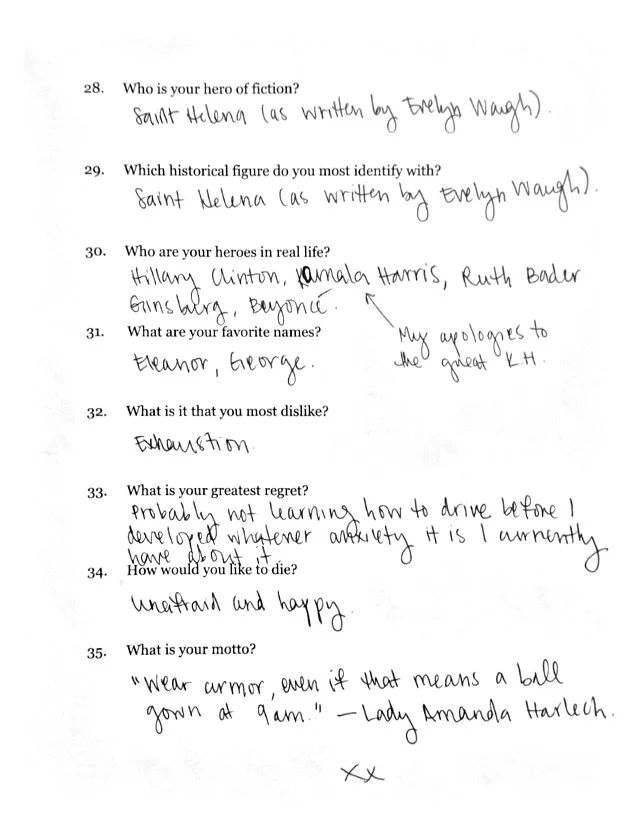 28. Who is your hero of fiction?
Saint Helena (as written by Evelyn Waugh).
29. Which historical figure do you most identify with?
Saint Helena (as written by Evelyn Waugh).
30. Who are your heroes in real life?
Hillary Clinton, Kamala Harris, Ruth Bader
Ginsburg, Beyoncé.
31. What are your favorite names?
My apologies to
the great K.H.
Eleanor, George.
32. What is it that you most dislike?
Exhaustion.
33. What is your greatest regret?
Probably not learning how to drive before I
developed whatever anxiety it is I currently
have about it.
34. How would you like to die?
Unafraid and happy.
35. What is your motto?
"Wear armor, even if that means a ball
gown at 9am." – Lady Amanda Harlech.
xx